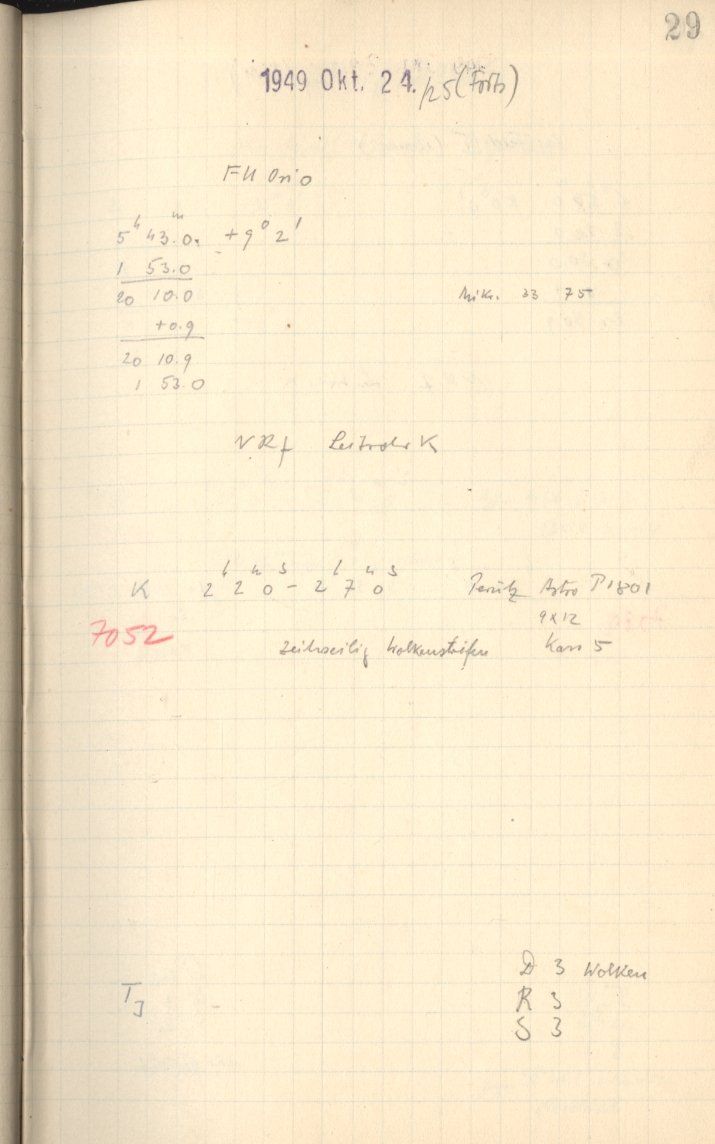 29
1949 Okt. 24./25 (Forts)
FU Orio
5ʰ 43.0ᵐ +9° 2'
1 53.0
20 10.0
Mikr. 33 75
+0.9
20 10.9
1 53.0
K 2ʰ 2ᵐ 0ˢ - 2ʰ 7ᵐ 0ˢ Perutz Astro P1801
9x12
7052
zeitweilig Wolkenstreifen Kass 5
D 3 Wolken
R 3
S 3